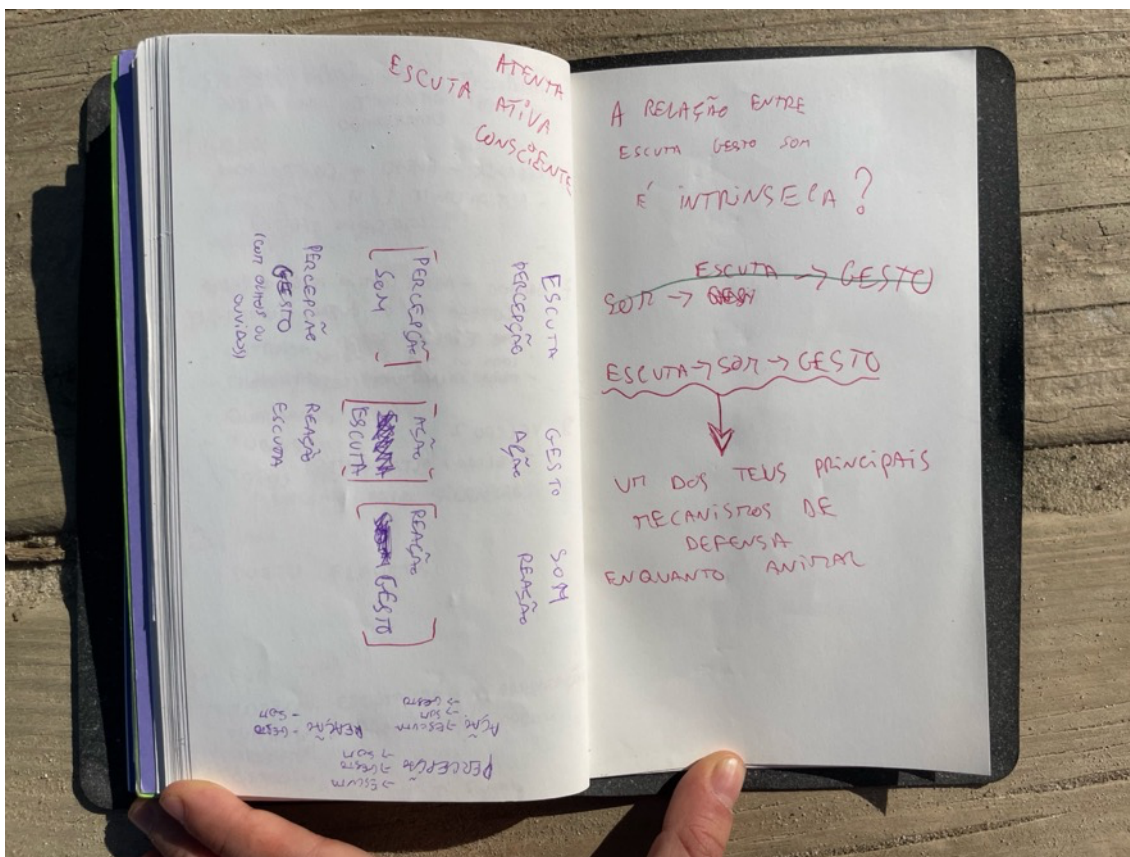 ATENTA
ESCUTA ATIVA
CONSCIENTE
ESCUTA GESTO SOM
PERCEPÇÃO AÇÃO REASÃO
[PERCEPÇÃO] [AÇÃO] [REAÇÃO
SOM ESCUTA GESTO]
PERCEPÇÃO REAÇÃO
GESTO ESCUTA
(COM OLHOS OU
OUVIDOS)
PERCEPÇÃO → ESCUTA
→ GESTO
→ SOM
AÇÃO → ESCUTA
→ SOM
→ GESTO
REAÇÃO - GESTO
- SOM
A RELAÇÃO ENTRE
ESCUTA GESTO SOM
É INTRÍNSECA?
ESCUTA → GESTO
SOM →
ESCUTA → SOM → GESTO
UM DOS TEUS PRINCIPAIS
MECANISMOS DE
DEFENSA
ENQUANTO ANIMAL